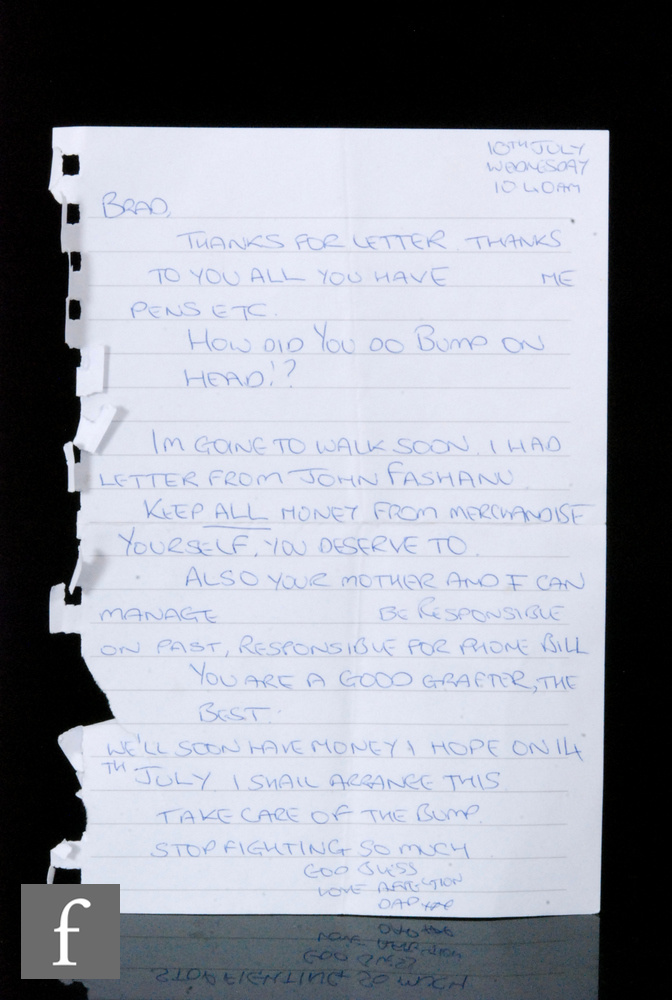 10TH JULY
WEDNESDAY
10 40AM
BRAD,
THANKS FOR LETTER THANKS
TO YOU ALL YOU HAVE ME
PENS ETC.
HOW DID YOU DO BUMP ON
HEAD!?
IM GOING TO WALK SOON. I HAD
LETTER FROM JOHN FASHANU
KEEP ALL MONEY FROM MERCHANDISE
YOURSELF. YOU DESERVE TO.
ALSO YOUR MOTHER AND I CAN
MANAGE BE RESPONSIBLE
ON PAST, RESPONSIBLE FOR PHONE BILL
YOU ARE A GOOD GRAFTER, THE
BEST.
WE'LL SOON HAVE MONEY I HOPE ON 14
TH JULY I SHALL ARRANGE THIS
TAKE CARE OF THE BUMP.
STOP FIGHTING SO MUCH
GOD BLESS
LOVE AFFECTION
DAD
f